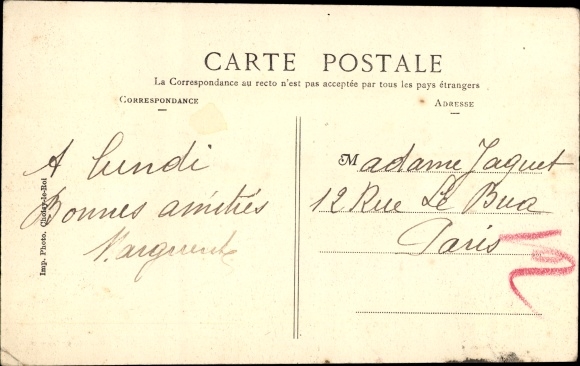 CARTE POSTALE
La Correspondance au recto n'est pas acceptée par tous les pays étrangers
CORRESPONDANCE
ADRESSE
A lundi
Bonnes amitiés
Madame Jaquet
12 Rue Le Bua
Paris
Imp. Photo. Choisy-le-Roi